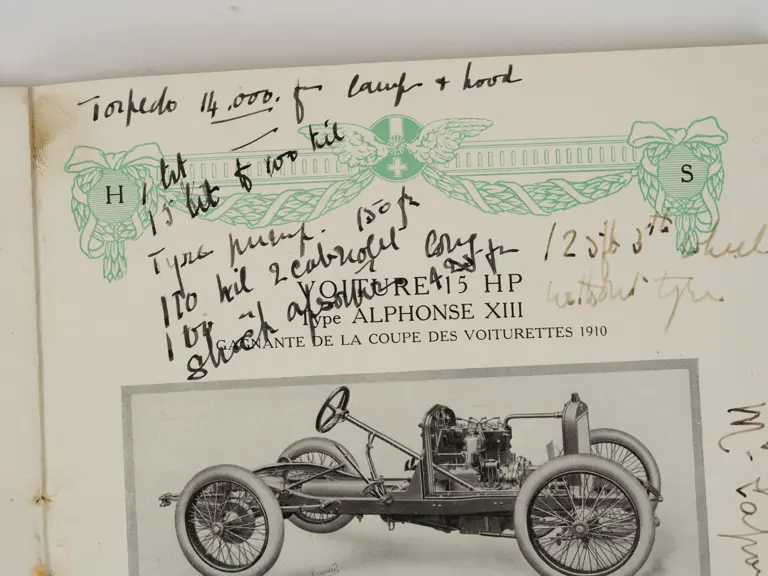 Torpedo 14.000. fr lamps + hood
H S
1 lit
15 lit to 100 kil
Tyre pump. 150 fr
110 kil 2 cabriolet long
100 "
Shock absorber 425 fr
125 fr 5th wheel
without tyre
VOITURE 15 HP
Type ALPHONSE XIII
GAGNANTE DE LA COUPE DES VOITURETTES 1910